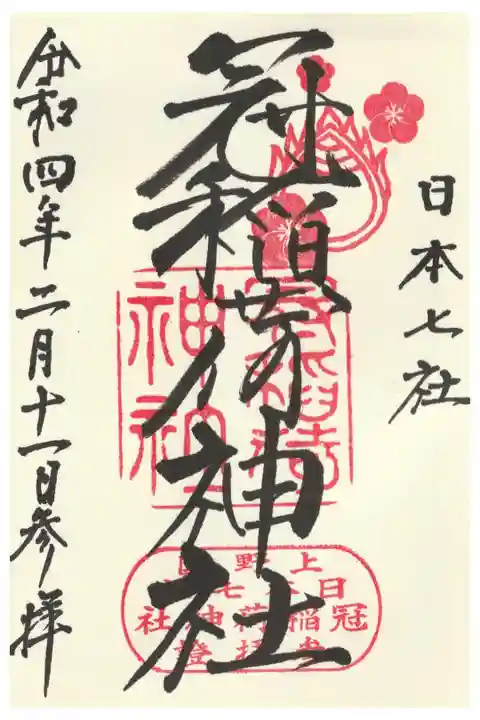 日本七社
冠稲荷神社
令和四年二月十一日参拝
冠稲荷
神社
上野国
日本七社
冠稲荷神社
参拝證